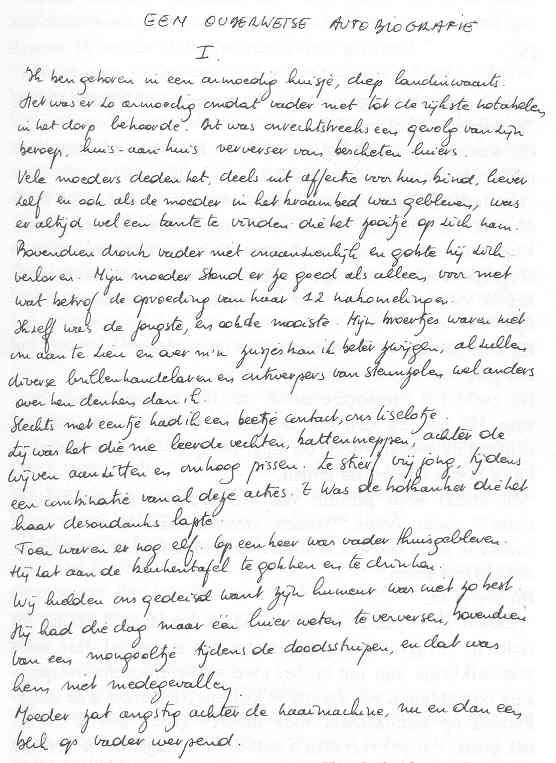 EEN OUDERWETSE AUTOBIOGRAFIE
I.
Ik ben geboren in een armoedig huisje, diep landinwaarts.
Het was er zo armoedig omdat vader niet tot de rijkste notabelen
in het dorp behoorde. Dit was onrechtstreeks een gevolg van zijn
beroep, huis-aan-huis ververser van bescheten luiers.
Vele moeders deden het, deels uit affectie voor hun kind, liever
zelf en ook als de moeder in het kraambed was gebleven, was
er altijd wel een tante te vinden die het zooitje op zich nam.
Bovendien dronk vader niet onaanzienlijk en gokte hij zich
verloren. Mijn moeder stond er zo goed als alleen voor met
wat betrof de opvoeding van haar 12 nakomelingen.
Ikzelf was de jongste, en ook de mooiste. Mijn broertjes waren niet
om aan te zien en over m'n zusjes kan ik beter zwijgen, al zullen
diverse brillenhandelaren en ontwerpers van steunzolen wel anders
over hen denken dan ik.
Slechts met eentje had ik een beetje contact, ons liselotje.
Zij was het die me leerde vechten, katten meppen, achter de
wijven aanzitten en omhoog pissen. Ze stierf vrij jong, tijdens
een combinatie van al deze acties. 't Was de botkanker die het
haar desondanks lapte.
Toen waren er nog elf. Op een keer was vader thuisgebleven.
Hij zat aan de keukentafel te gokken en te drinken.
Wij hielden ons gedeisd want zijn humeur was niet zo best.
Hij had die dag maar één luier weten te verversen, bovendien
van een mongooltje tijdens de doodsstuipen, en dat was
hem niet medegevallen.
Moeder zat angstig achter de naaimachine, nu en dan een
blik op vader werpend.